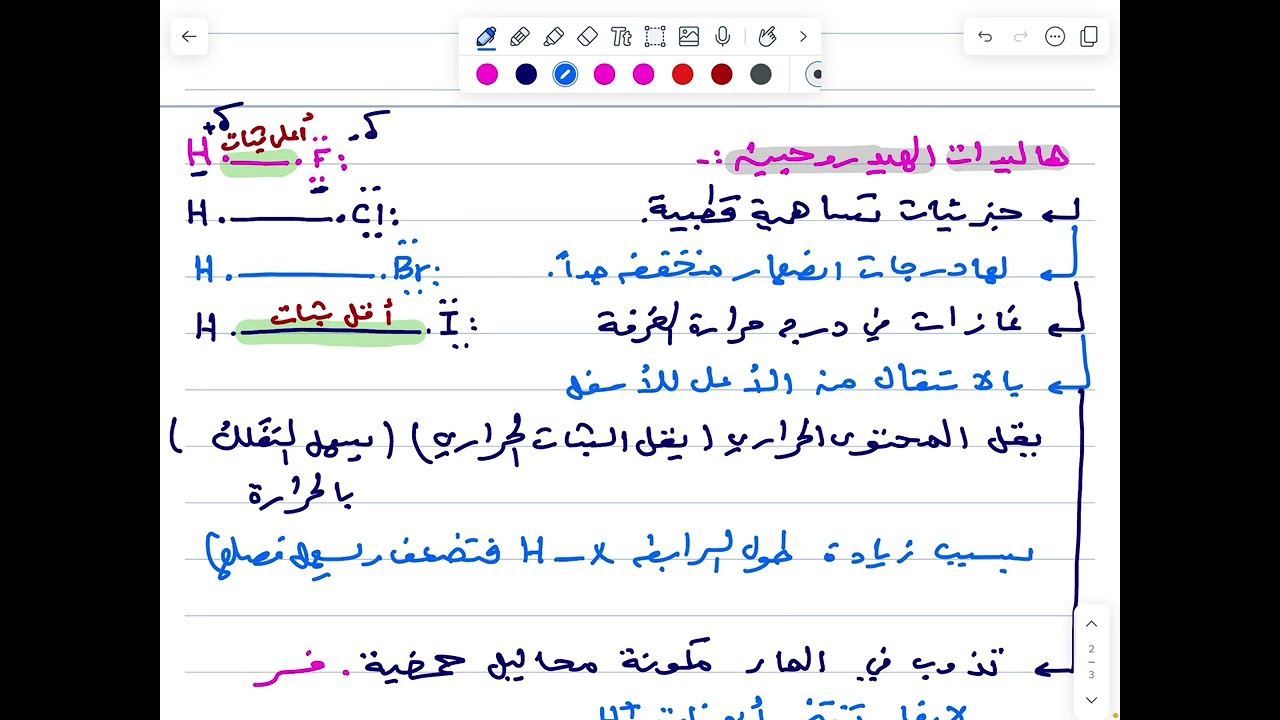 هاليدات الهيدروجينية :-
جزئيات تساهمية قطبية.
لها درجات انصهار منخفضة جداً.
غازات في درجة حرارة الغرفة
بالانتقال من الأعلى للأسفل
يقل المحتوى الحراري (يقل الثبات الحراري) (يسهل التفكك)
بالحرارة
بسبب زيادة طول الرابطة H-X فتضعف ويسهل فصلها
تذوب في الماء مكونة محاليل حمضية. فسر
H+
δ+ δ-
أعلى ثبات
H F:
H Cl:
H Br:
أقل ثبات
H I:
Tt
2
3